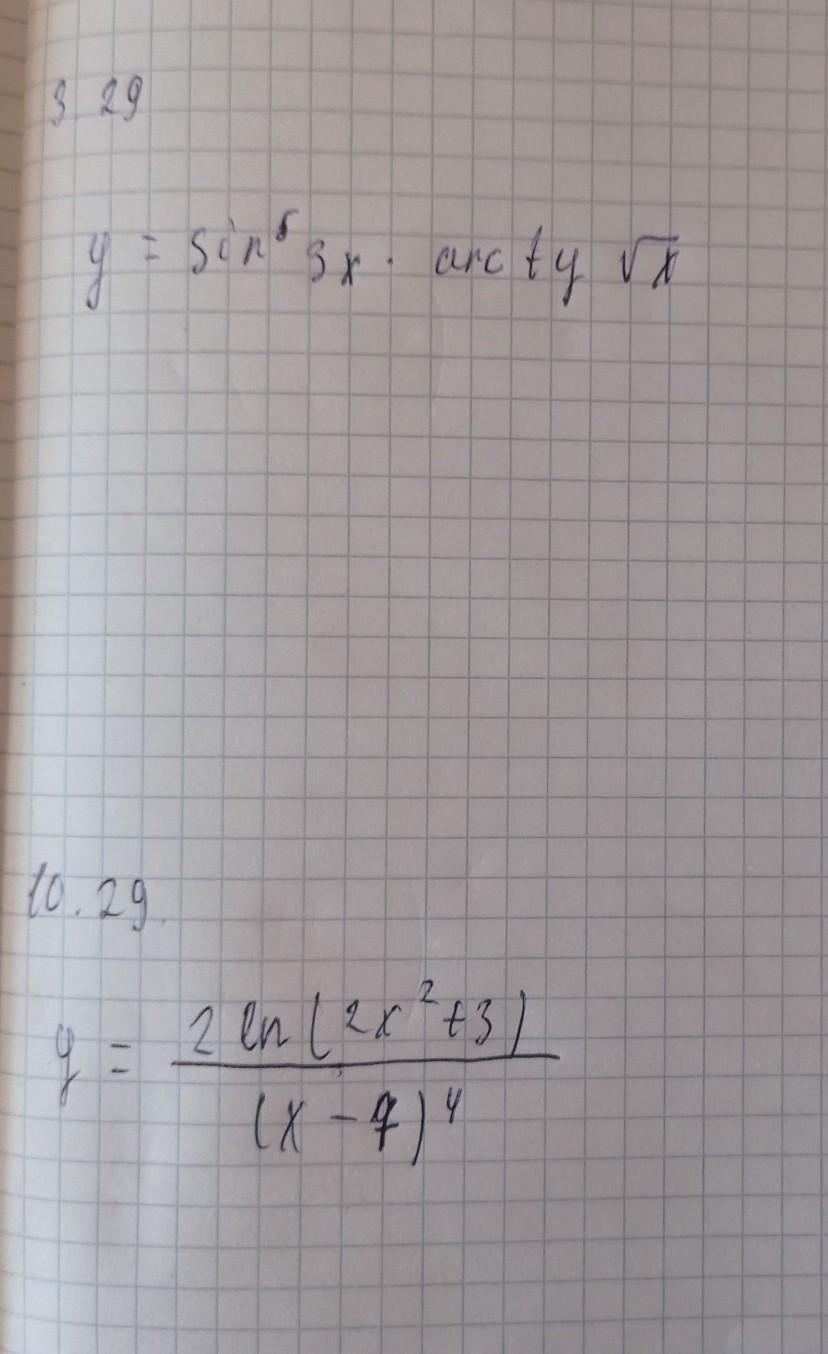 3.29
y = sin⁵ 3x · arctg √x
10.29.
y = 2 ln(2x²+3) / (x-7)⁴